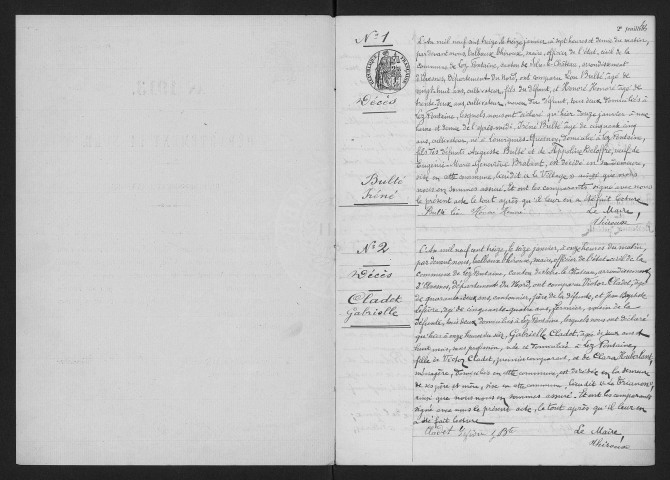 2e feuillet
N°1
Décès
Bulté
Iréné
L'An mil neuf cent treize, le treize janvier, à sept heures et demie du matin,
par devant nous, Thiroux, maire, officier de l'État civil de la
commune de Lez Fontaine, canton de Solre le Château, arrondissement
d'Avesnes, département du Nord, ont comparu Léon Bulté âgé de
vingt huit ans, cultivateur, fils du défunt, et Honoré Honoré âgé de
trente deux ans, cultivateur, du défunt, tous deux domiciliés à
Lez Fontaine, lesquels nous ont déclaré qu'hier douze janvier à deux
heures et demie de l'après midi, Iréné Bulté âgé de cinquante cinq
ans, cultivateur, né à domicilié à Lez Fontaine,
fils des défunts Auguste Bulté et de Appoline veuf de
Eugénie Marie Geneviève Brabant, est décédé en sa demeure,
sise en cette commune, lieudit le Village ainsi que nous
nous en sommes assuré. Et ont les comparants signé avec nous
le présent acte le tout après qu'il leur en a été fait lecture.
Bulté Léon Honoré Honoré Le Maire
Thiroux
N°2
Décès
Cladet
Gabrielle
L'An mil neuf cent treize, le seize janvier, à onze heures du matin,
par devant nous, Thiroux, maire, officier de l'État civil de la
commune de Lez Fontaine, canton de Solre le Château, arrondissement
d'Avesnes, département du Nord, ont comparu Victor Cladet, âgé
de quarante deux ans, cantonnier, père de la défunte, et Jean Baptiste
Lefèvre, âgé de cinquante quatre ans, fermier, voisin de la
défunte, tous deux domiciliés à Lez Fontaine, lesquels nous ont déclaré
qu'hier à onze heures du soir, Gabrielle Cladet, âgée de deux ans et
huit mois, sans profession, née et domiciliée à Lez Fontaine,
fille de Victor Cladet, premier comparant, et de Clara
ménagère, domiciliés en cette commune, est décédée en la demeure
de ses père et mère, sise en cette commune, lieudit
ainsi que nous nous en sommes assuré. Et ont les comparants
signé avec nous le présent acte, le tout après qu'il leur en
a été fait lecture
Cladet Lefèvre J Bte Le Maire
Thiroux